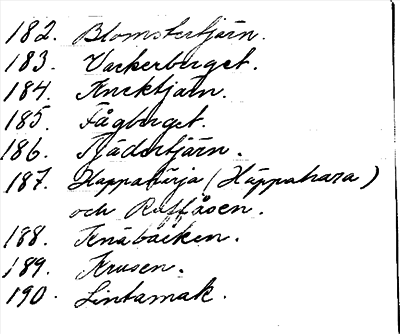 182. Blomstertjärn.
183. Vackerberget.
184. Knektjärn.
185. Fågberget.
186. Tjädertjärn.
187. Happahärja (Häppahara)
och Raffåsen.
188. Knäbäcken.
189. Krusen.
190. Lintamak.